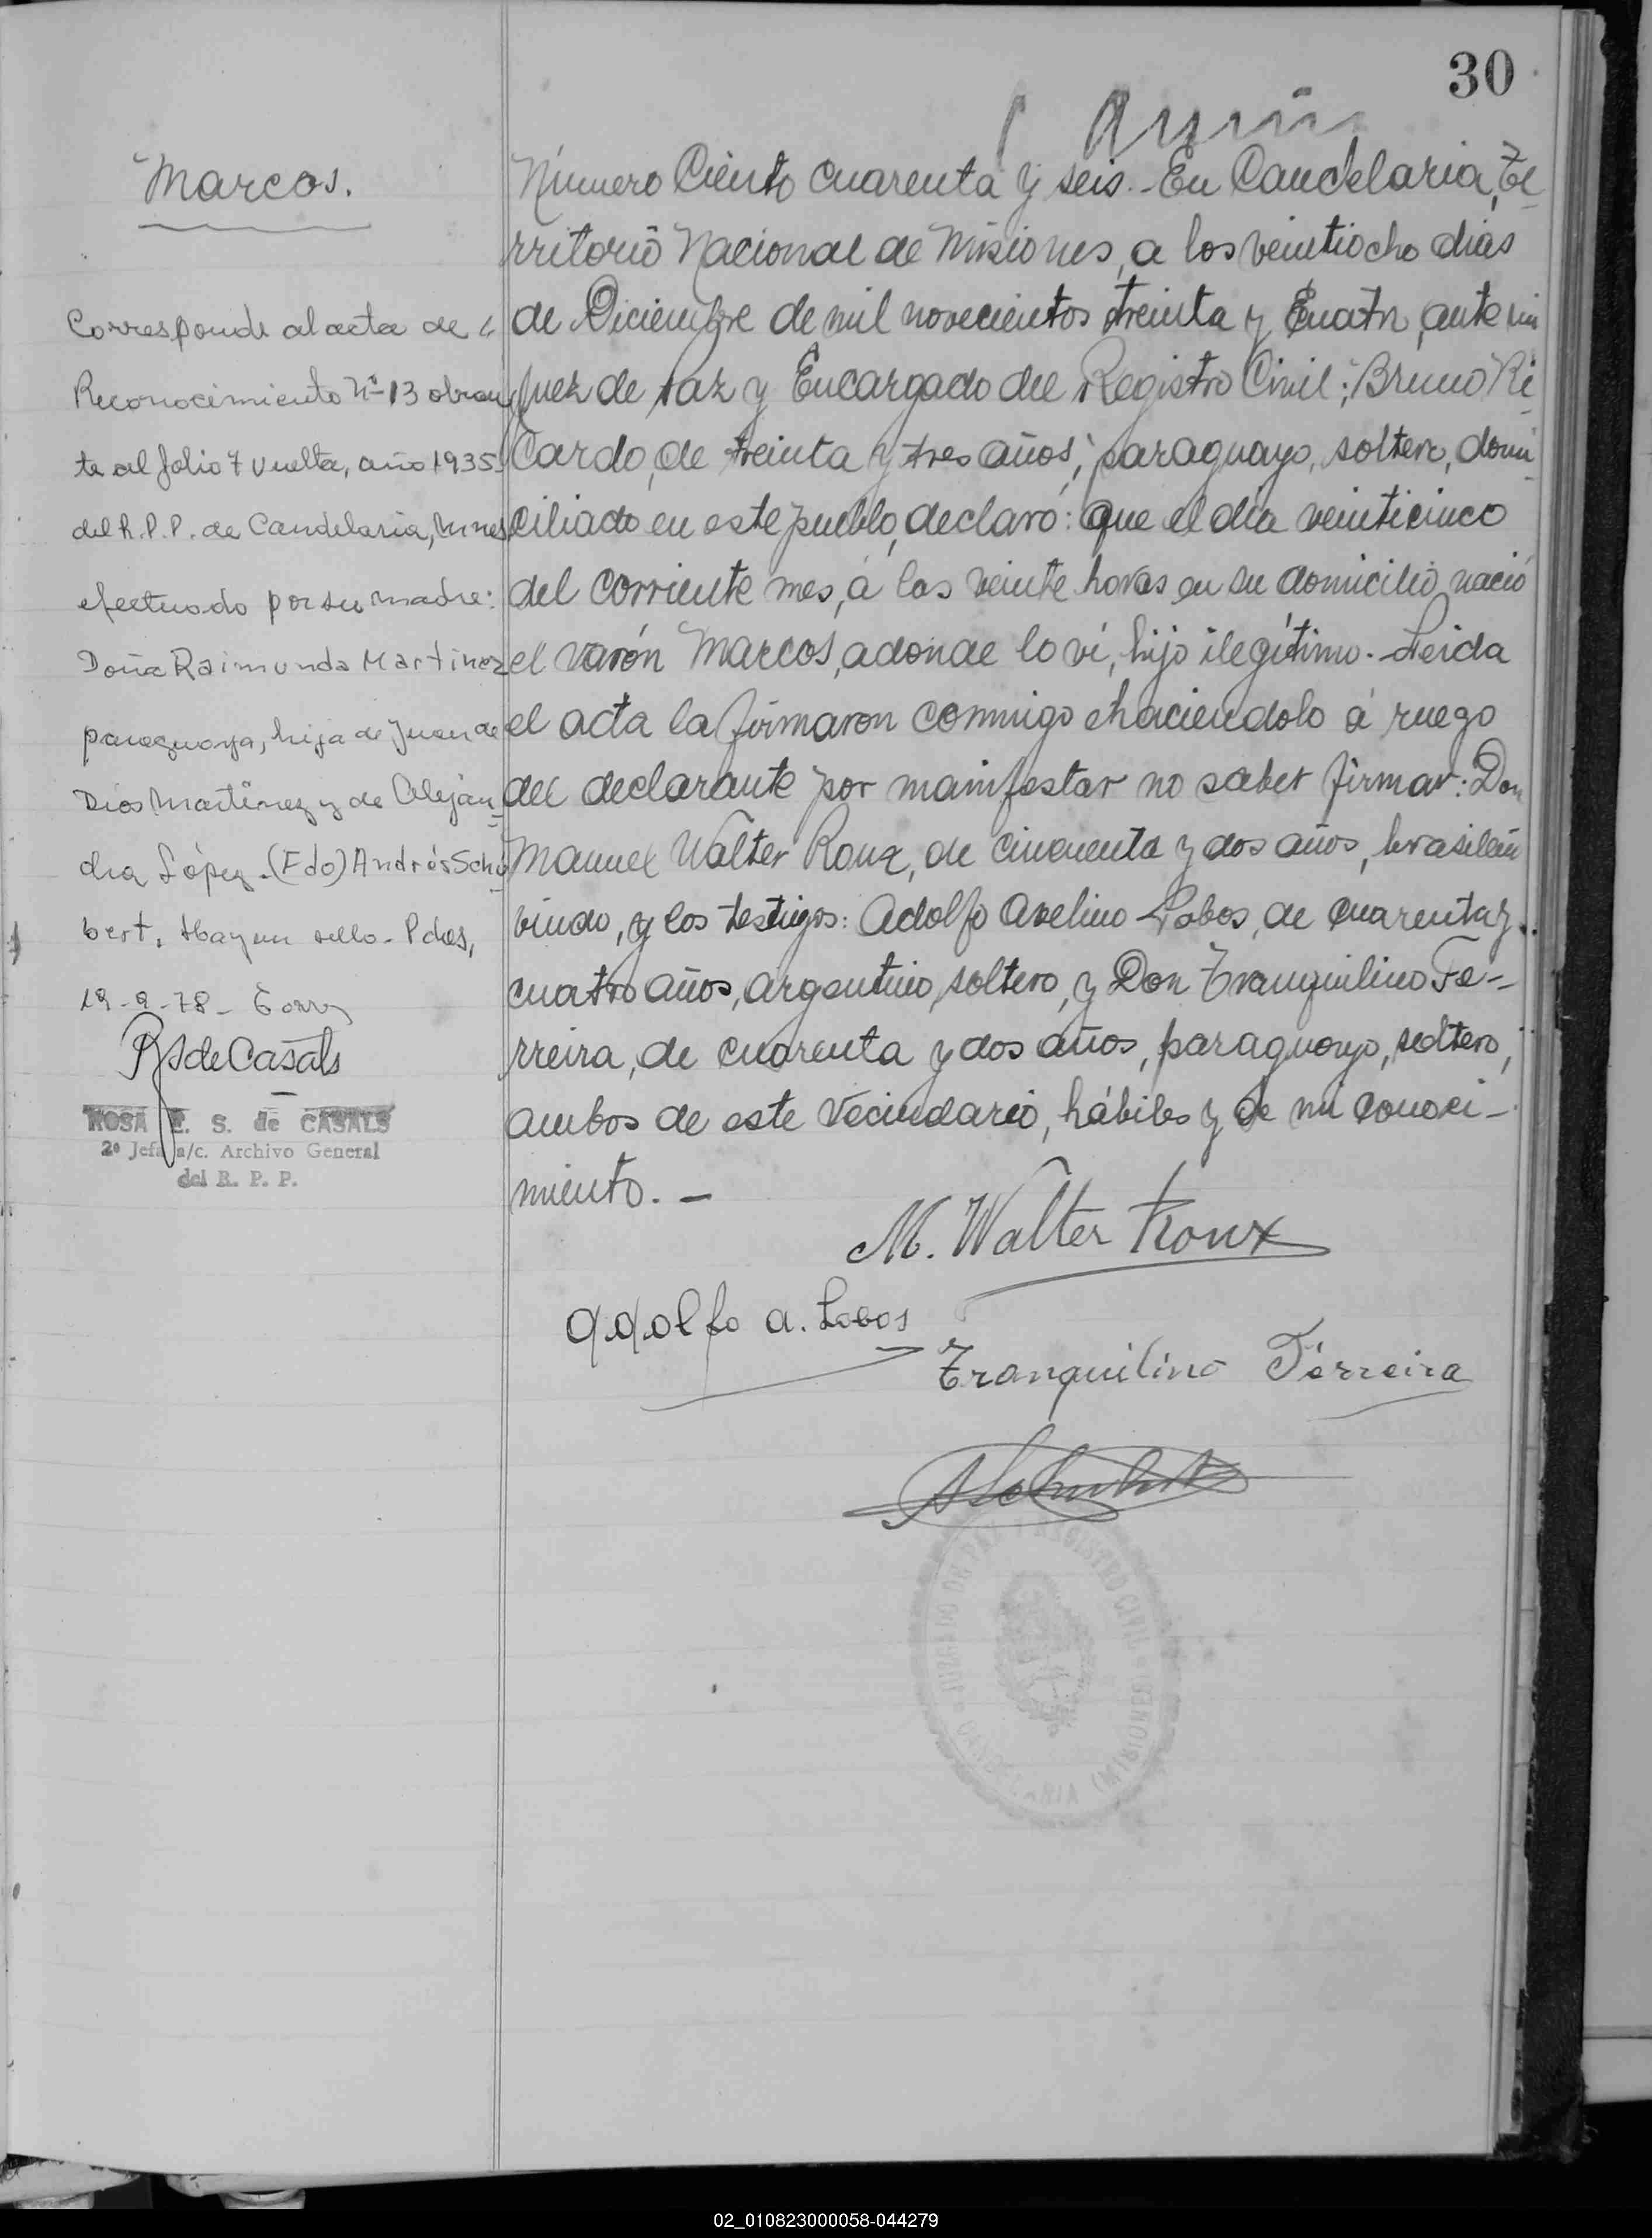 30
Marcos.
Número Ciento cuarenta y seis.- En Candelaria, Te
rritorio Nacional de Misiones, a los veintiocho dias
de Diciembre de mil novecientos treinta y Cuatro, ante mi
Juez de Paz y Encargado del Registro Civil; Bruno Ri
cardo, de treinta y tres años, paraguayo, soltero, domi
ciliado en este pueblo, declaró: que el dia veinticinco
del corriente mes, á las veinte horas en su domicilio nació
el varón Marcos, adonde lo ví, hijo ilegítimo. Leida
el acta la firmaron conmigo haciendolo á ruego
del declarante por manifestar no saber firmar: Don
Manuel Walter Roux, de cincuenta y dos años, brasileño
viudo, y los testigos: Adolfo Avelino Lobos, de cuarenta y
cuatro años, argentino, soltero, y Don Tranquilino Fe-
rreira, de cuarenta y dos años, paraguayo, soltero,
ambos de este vecindario, hábiles y de mi conoci-
miento.-
Corresponde al acta de
Reconocimiento Nº 13 obran
te al folio 7 vuelta, año 1935
del R.P.P. de Candelaria, Mnes
efectuado por su madre:
Doña Raimunda Martinez
paraguaya, hija de Juan de
Dios Martinez y de Alejan
dra López.-(Fdo) Andrés Schu
bert. Hay un sello.- Pdas,
19-9-78-
RSdeCasals
ROSA E. S. de CASALS
2º Jefa a/c. Archivo General
del R. P. P.
M. Walter Roux
Adolfo A. Lobos
Tranquilino Ferreira
JUZGADO DE PAZ REGISTRO CIVIL
CANDELARIA (MISIONES)
02_010823000058-044279